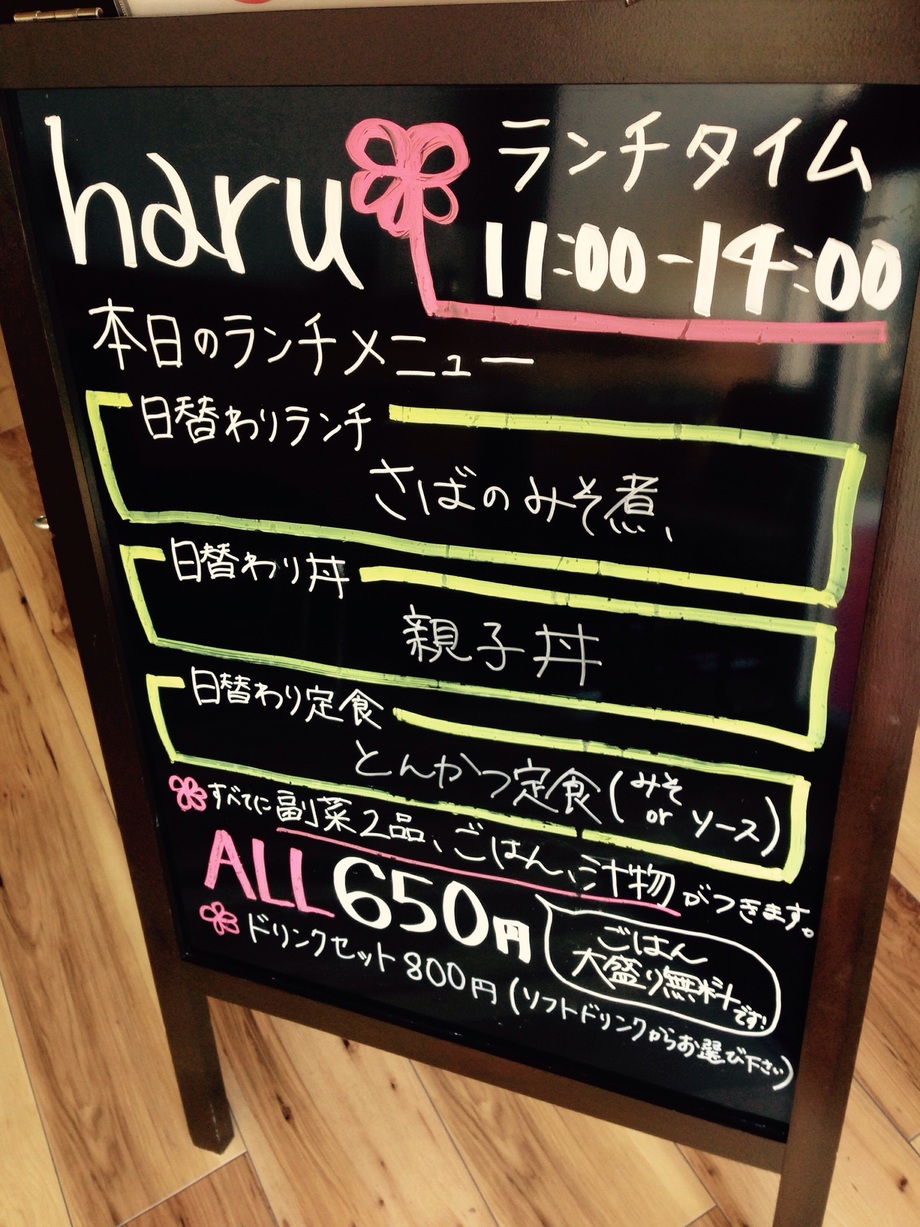 haru
ランチタイム
11:00-14:00
本日のランチメニュー
日替わりランチ
さばのみそ煮、
日替わり丼
親子丼
日替わり定食
とんかつ定食(みそ or ソース)
すべてに副菜2品、ごはん、汁物がつきます。
ALL 650円
ごはん
大盛り無料です!
ドリンクセット 800円(ソフトドリンクからお選び下さい)